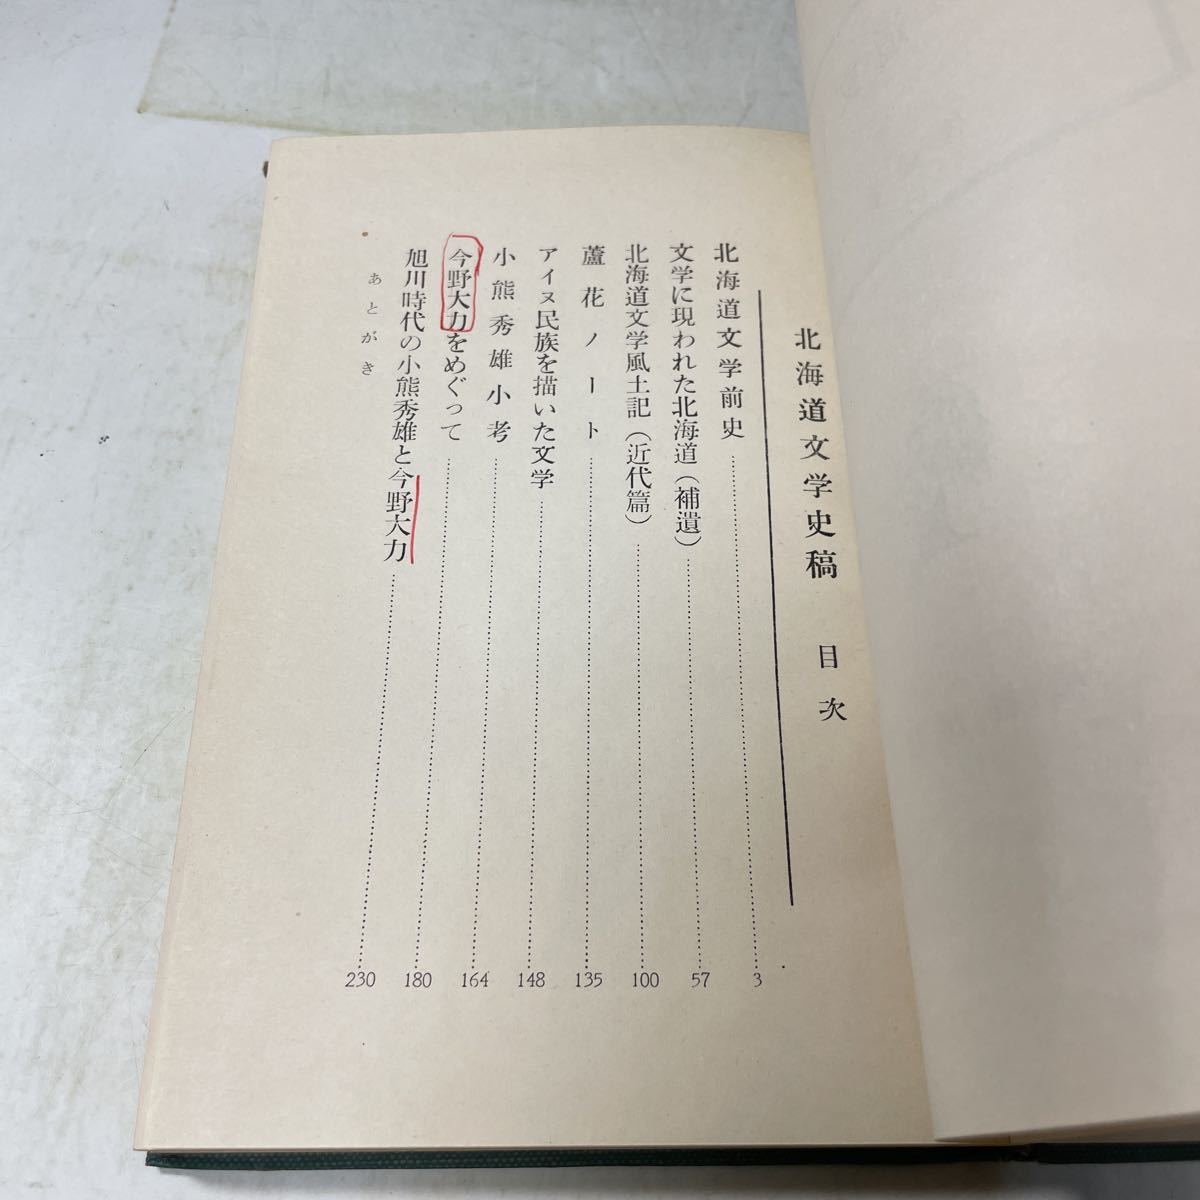 北海道文学史稿　目次
北海道文学前史……3
文学に現われた北海道（補遺）……57
北海道文学風土記（近代篇）……100
蘆花ノート……135
アイヌ民族を描いた文学……148
小熊秀雄小考……164
今野大力をめぐって……180
旭川時代の小熊秀雄と今野大力……230
あとがき